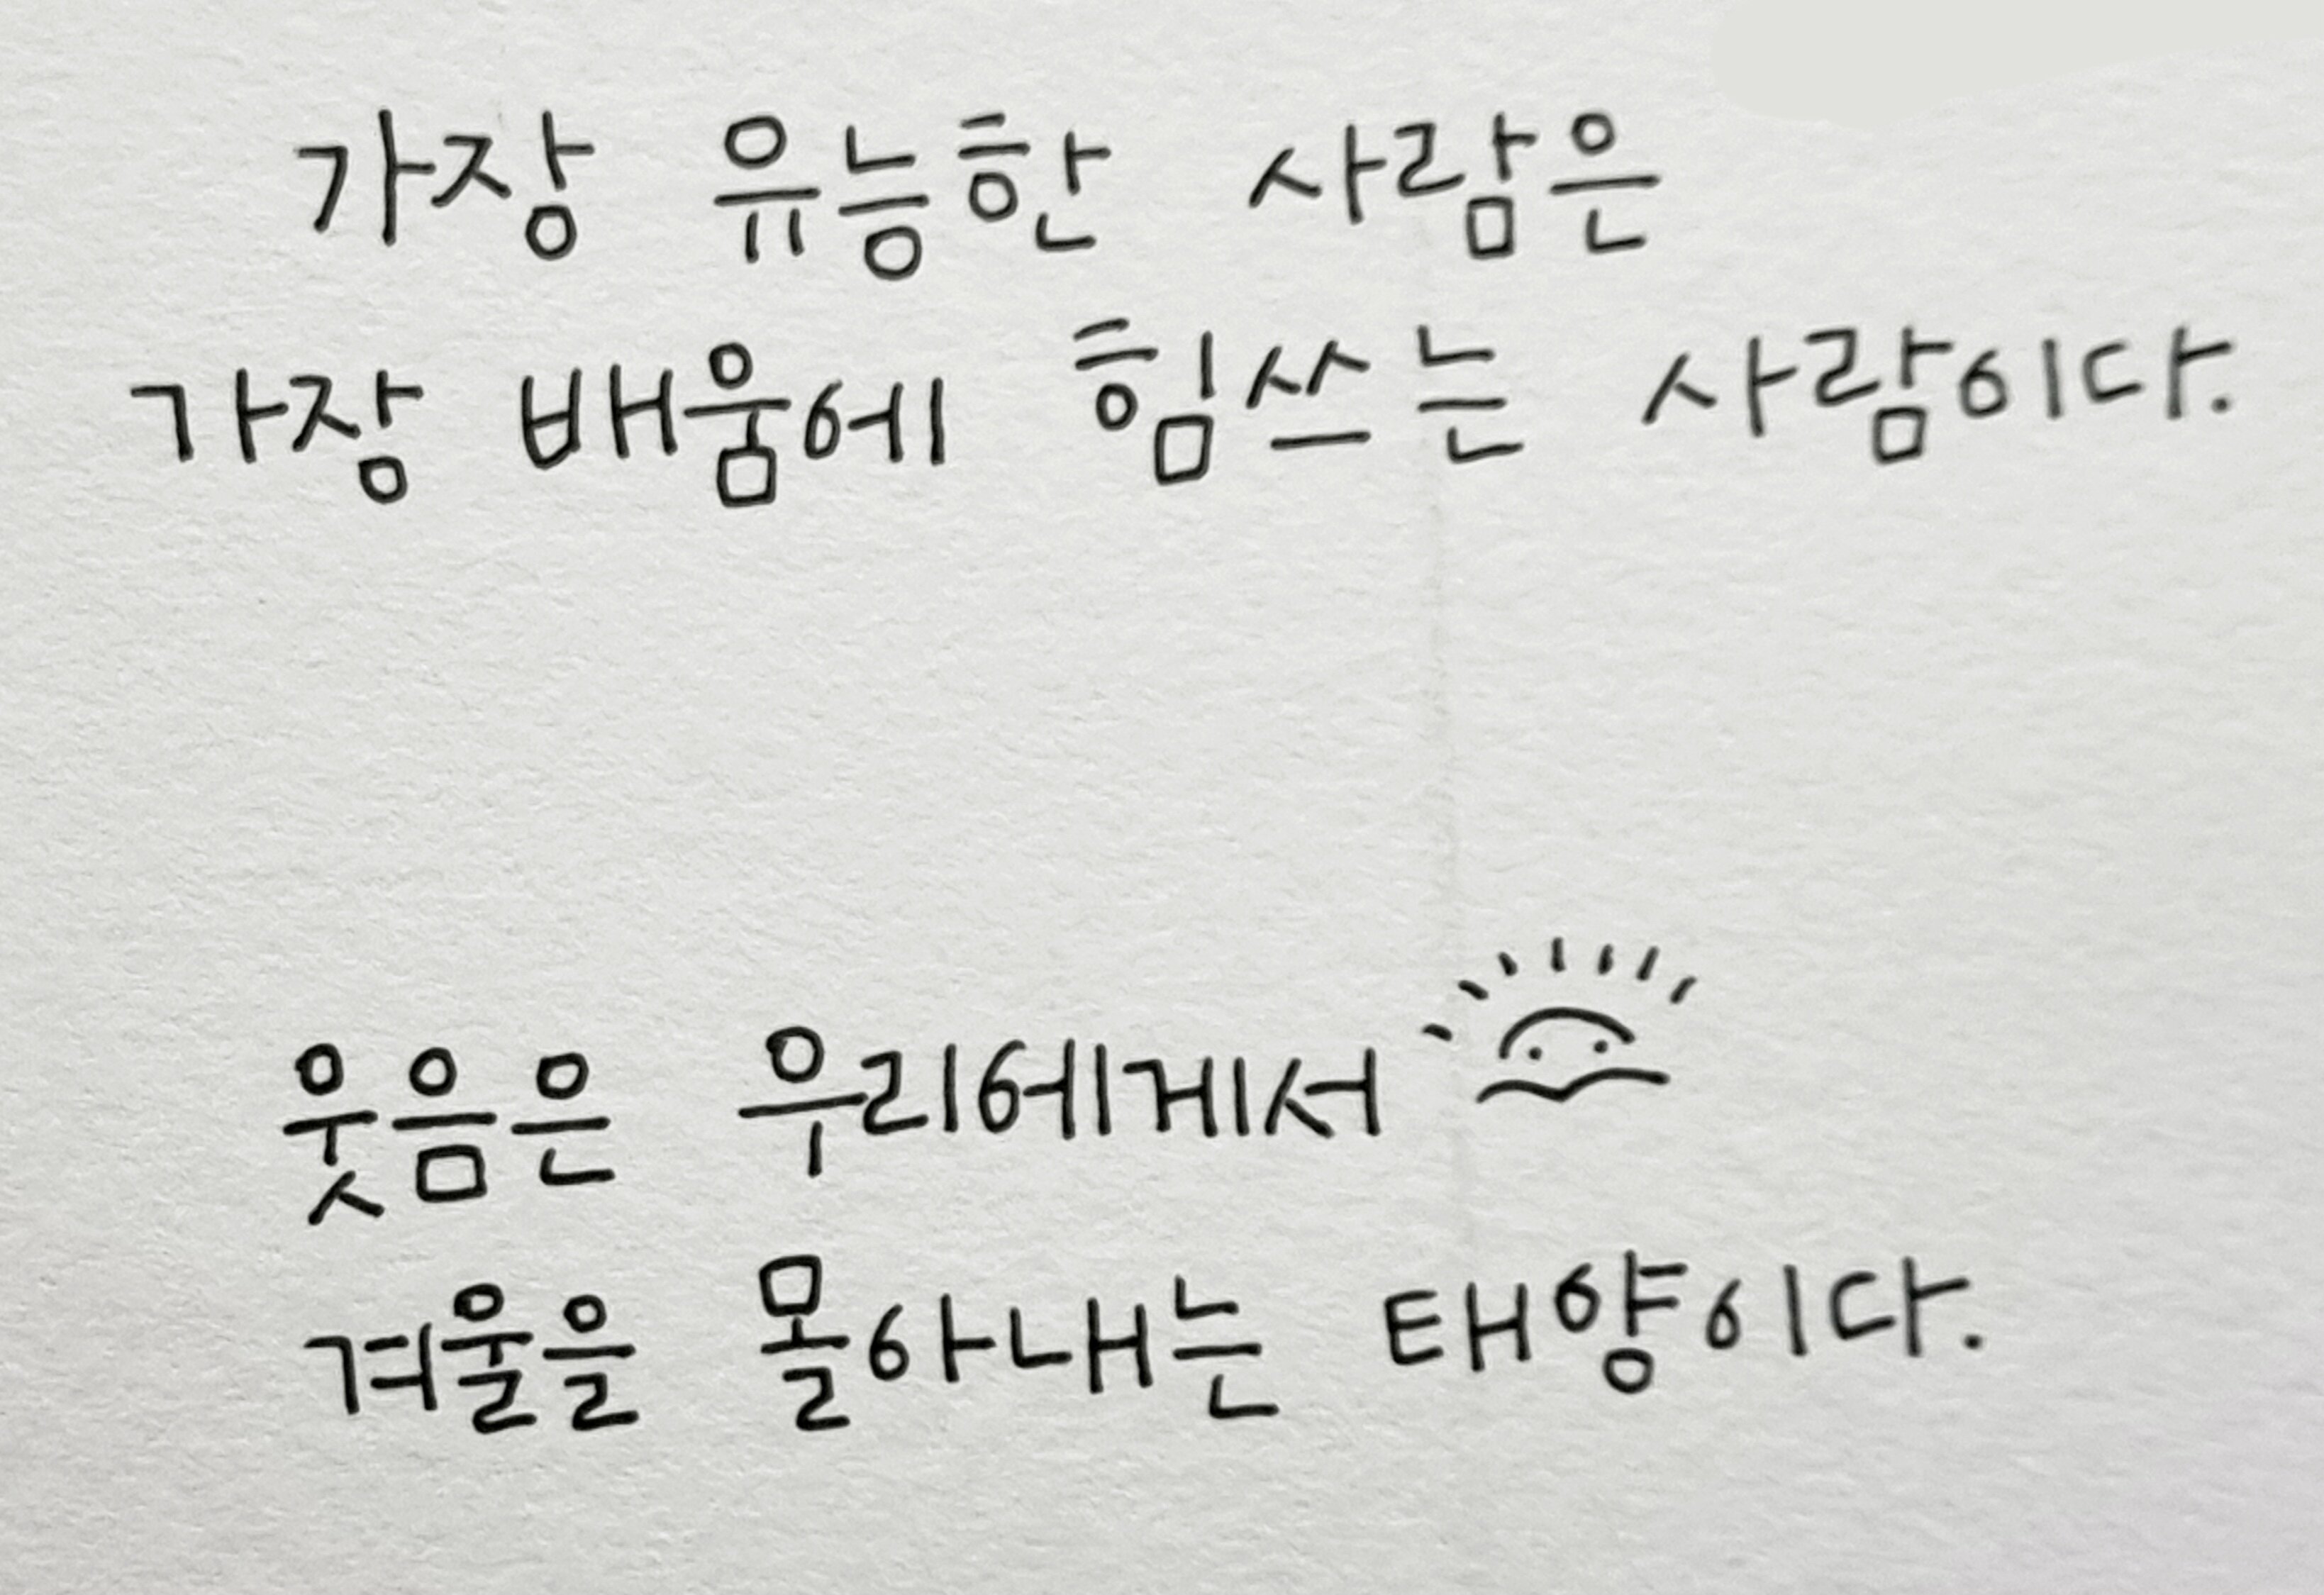 가장 유능한 사람은
가장 배움에 힘쓰는 사람이다.
웃음은 우리에게서
겨울을 몰아내는 태양이다.